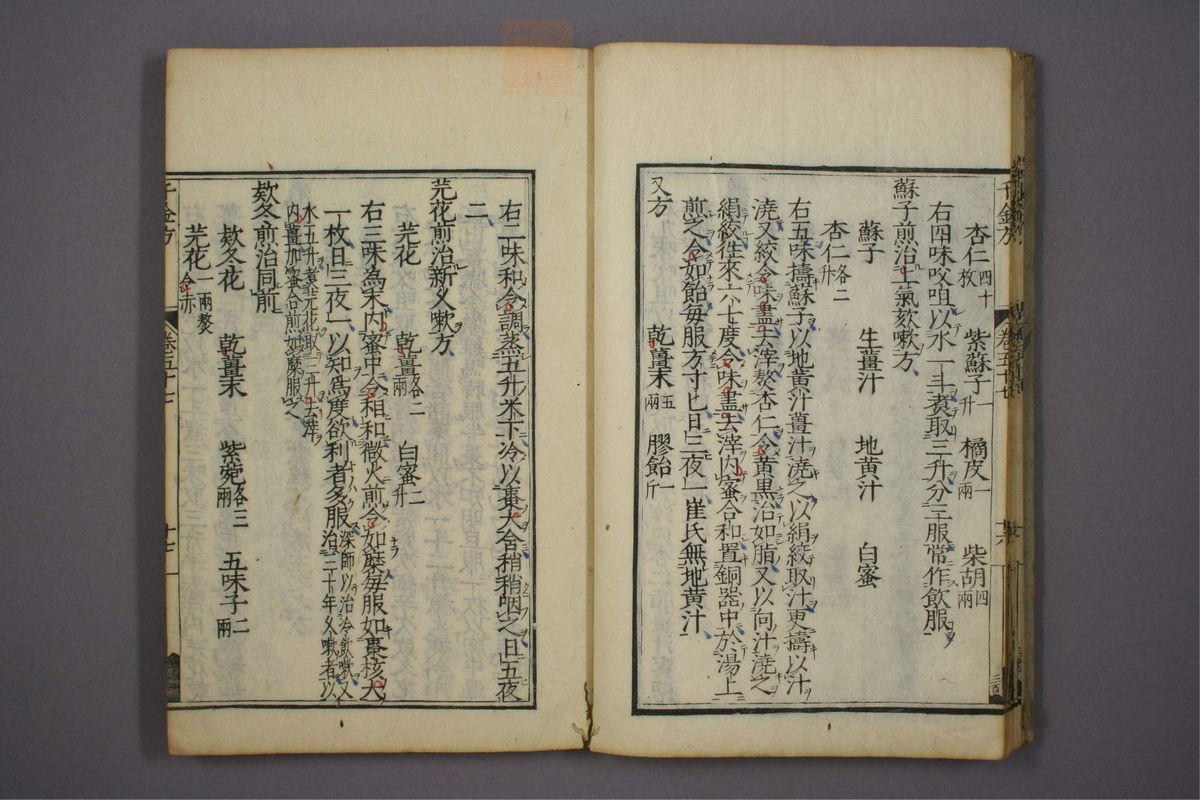 杏仁四十枚 紫蘇子一升 橘皮一兩 柴胡四兩
右四味㕮咀以水一斗煮取三升分三服常作飲服
蘇子煎治上氣欬嗽方
蘇子 生薑汁 地黃汁 白蜜
杏仁各二升
右五味擣蘇子以地黃汁薑汁澆之以絹絞取汁更擣以汁
澆又絞令味盡去滓熬杏仁令黃黑治如脂又以向汁澆之
絹絞往來六七度令味盡去滓内蜜合和置銅器中於湯上
煎之令如飴每服方寸匕日三夜一崔氏無地黃汁
又方 乾薑末五兩 膠飴一斤
右二味和令調蒸五升米下冷以棗大含稍稍嚥之日五夜
二
芫花煎治新久嗽方
芫花 乾薑各二兩 白蜜二升
右三味為末内蜜中令相和微火煎令如糜每服如棗核大
一枚日三夜一以知為度欲利者多服深師以治冷飲嗽又治三十年久嗽者以
水五升煮芫花取三升去滓内薑加蜜合煎如糜服之
欬冬煎治同前
欬冬花 乾薑末 紫菀各三兩 五味子二兩
芫花一兩熬令赤
千金方 卷五十七 十七